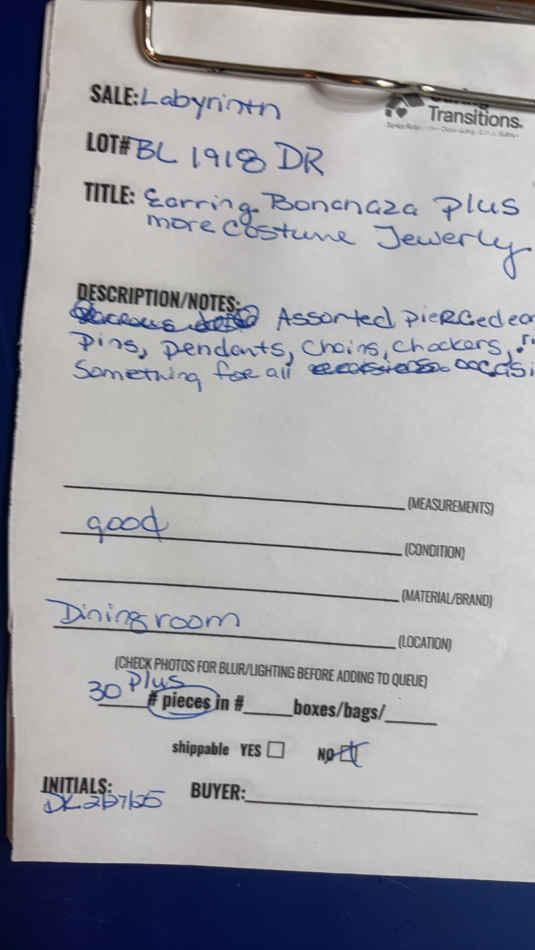 SALE: Labyrinth
Transitions.
LOT# BL 1918 DR
TITLE: Earring Bonanaza Plus
more Costume Jewerly
DESCRIPTION/NOTES:
Assorted, Pierced ear
Pins, Pendants, Chains, Chockers,
Something for all occasi
(MEASUREMENTS)
good (CONDITION)
(MATERIAL/BRAND)
Dining room (LOCATION)
(CHECK PHOTOS FOR BLUR/LIGHTING BEFORE ADDING TO QUEUE)
30 Plus # pieces in #____ boxes/bags/____
shippable YES ☐ NO ☑
INITIALS: BUYER: